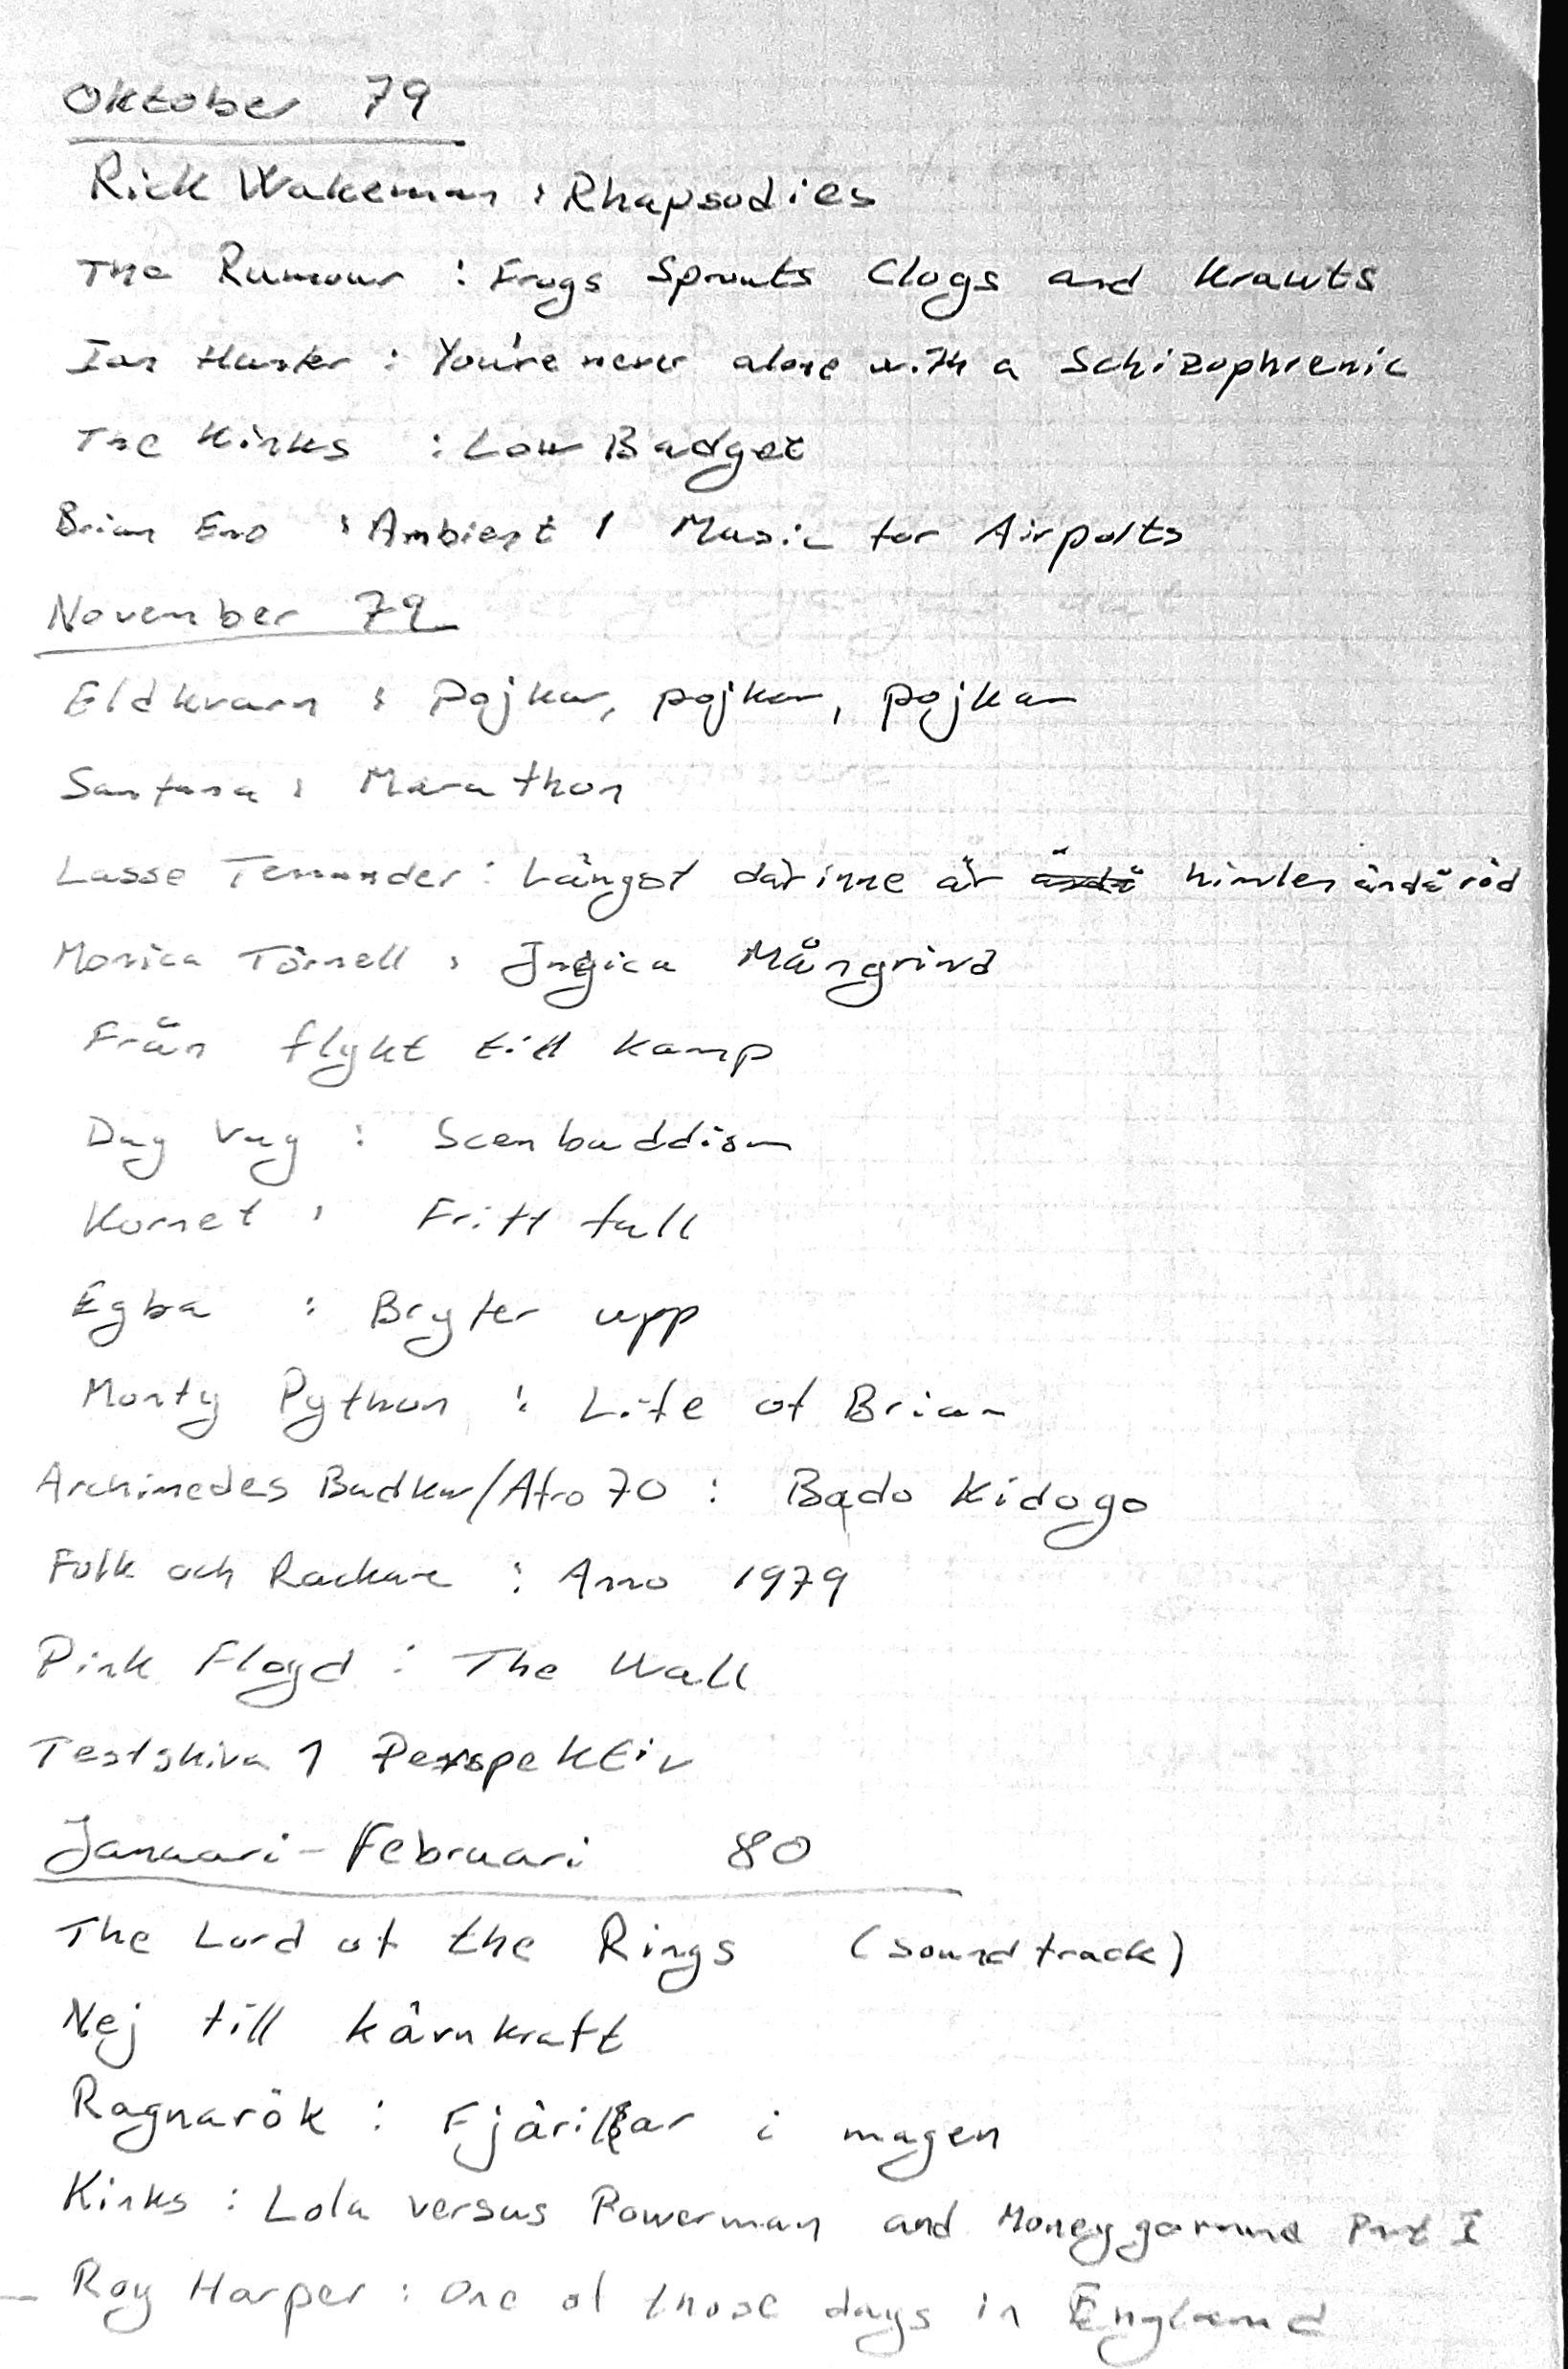 Oktober 79
Rick Wakeman : Rhapsodies
The Rumour : Frogs Sprouts Clogs and Krauts
Ian Hunter : You're never alone with a Schizophrenic
The Kinks : Low Budget
Brian Eno : Ambient 1 Music for Airports
November 79
Eldkvarn : Pojkar, pojkar, pojkar
Santana : Marathon
Lasse Tennander : Längst därinne är himlen ändå röd
Monica Törnell : Ingica Mångrind
Från flykt till kamp
Dag Vag : Scenbuddism
Kornet : Fritt fall
Egba : Bryter upp
Monty Python : Life of Brian
Archimedes Badkar/Afro 70 : Bado Kidogo
Folk och Rackare : Anno 1979
Pink Floyd : The Wall
Testskiva 1 Perspektiv
Januari-Februari 80
The Lord of the Rings (soundtrack)
Nej till kärnkraft
Ragnarök : Fjärilar i magen
Kinks : Lola versus Powerman and Moneygoround Part I
Roy Harper : One of those days in England